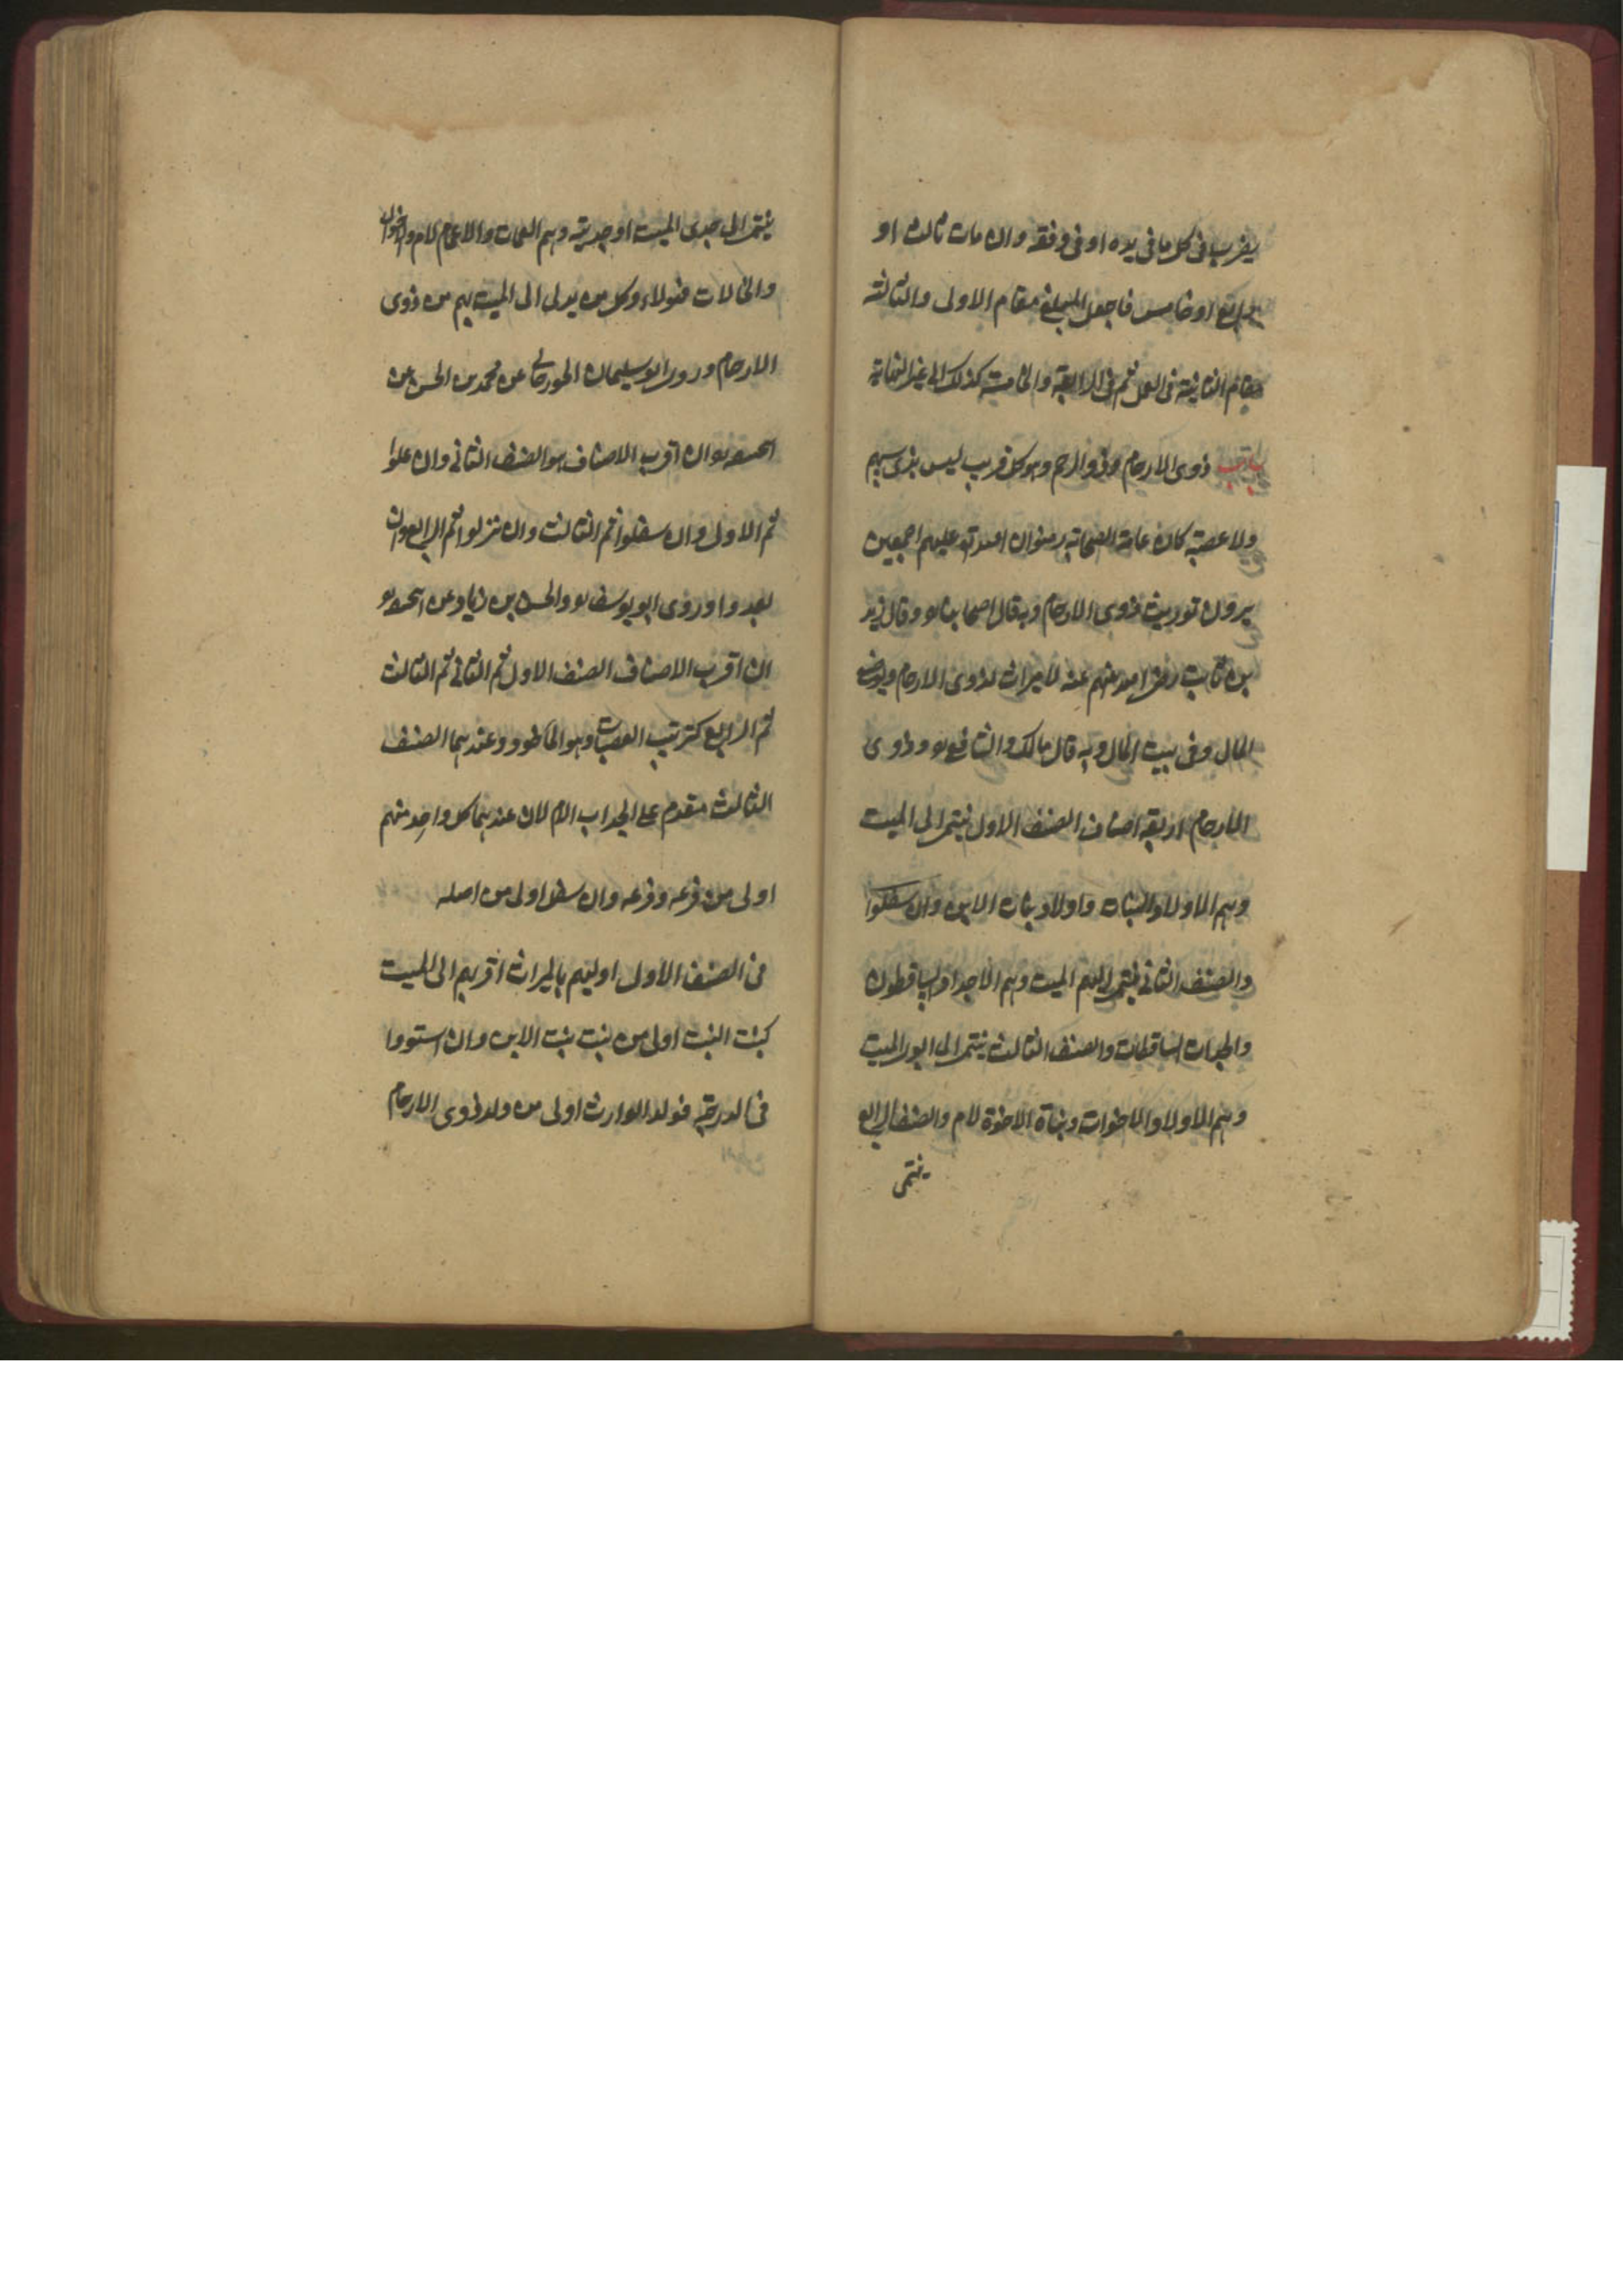 يضرب فى كل ما فى يده او فى وفقه وان مات ثالث او
رابع او خامس فاجعل المبلغ مقام الاولى والثالثة
مقام الثانية فى العمل ثم فى الرابعة والخامسة كذلك الى غير النهاية
باب ذوى الارحام وذو الرحم وهو كل قريب ليس بذى سهم
ولا عصبة كان عامة الصحابة رضوان الله تع عليهم اجمعين
يرون توريث ذوى الارحام وبه قال اصحابنا وقال زيد
بن ثابت رضى الله عنه لا ميراث لذوى الارحام ويوضع
المال فى بيت المال وبه قال مالك والشافعى وذوى
الارحام اربعة اصناف الصنف الاول ينتمى الى الميت
وهم الاولاد البنات واولاد بنات الابن وان سفلوا
والصنف الثانى ينتمى اليهم الميت وهم الاجداد الساقطون
والجدات الساقطات والصنف الثالث ينتمى الى ابوى الميت
وهم الاولاد الاخوات وبناة الاخوة لام والصنف الرابع
ينتمى
ينتمى الى جدى الميت او جديته وهم العمات والاعمام لام والاخوال
والخالات فهولاء وكل من يدلى الى الميت بهم من ذوى
الارحام وروى ابو سليمان الجورجانى عن محمد بن الحسن عن
ان اقرب الاصناف هو الصنف الثانى وان علوا
ثم الاول وان سفلوا ثم الثالث وان نزلوا ثم الرابع وان
بعدوا وروى ابو يوسف والحسن بن زياد عن
ان اقرب الاصناف الصنف الاول ثم الثانى ثم الثالث
ثم الرابع كترتيب العصبات وهو الماخوذ وعندهما الصنف
الثالث مقدم على الجد اب الام لان عندهما كل واحد منهم
اولى من فرعه وفرعه وان سفل اولى من اصله
فى الصنف الاول اوليهم بالميراث اقربهم الى الميت
كبنت البنت اولى من بنت بنت الابن وان استووا
فى الدرجة فولد الوارث اولى من ولد ذوى الارحام